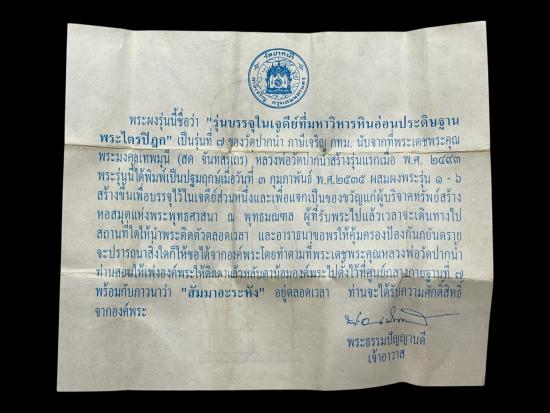 วัดปากน้ำ
ภาษีเจริญ กรุงเทพมหานคร
พระผงรุ่นนี้ชื่อว่า "รุ่นบรรจุในเจดีย์ที่มหาวิหารหินอ่อนประดิษฐาน
พระไตรปิฎก" เป็นรุ่นที่ ๗ ของวัดปากน้ำ ภาษีเจริญ กทม. นับจากที่พระเดชพระคุณ
พระมงคลเทพมุนี (สด จันทสเถร) หลวงพ่อวัดปากน้ำสร้างรุ่นแรกเมื่อ พ.ศ. ๒๔๙๓
พระรุ่นนี้ได้พิมพ์เป็นปฐมฤกษ์เมื่อวันที่ ๓ กุมภาพันธ์ พ.ศ.๒๕๓๕ ผสมผงพระรุ่น ๑ - ๖
สร้างขึ้นเพื่อบรรจุไว้ในเจดีย์ส่วนหนึ่งและเพื่อแจกเป็นของขวัญแก่ผู้บริจาคทรัพย์สร้าง
หอสมุดแห่งพระพุทธศาสนา ณ พุทธมณฑล ผู้ที่รับพระไปแล้วเวลาจะเดินทางไป
สถานที่ใดให้นำพระติดตัวตลอดเวลา และอาราธนาขอพรให้คุ้มครองป้องกันภยันตราย
จะปรารถนาสิ่งใดก็ให้ขอได้จากองค์พระโดยทำตามที่พระเดชพระคุณหลวงพ่อวัดปากน้ำ
ท่านสอนให้เพ่งองค์พระให้ติดตาแล้วหลับตาน้อมองค์พระไปตั้งไว้ที่ศูนย์กลางกายฐานที่ ๗
พร้อมกับภาวนาว่า "สัมมาอะระหัง" อยู่ตลอดเวลา ท่านจะได้รับความศักดิ์สิทธิ์
จากองค์พระ
พระธรรมปัญญาบดี
เจ้าอาวาส